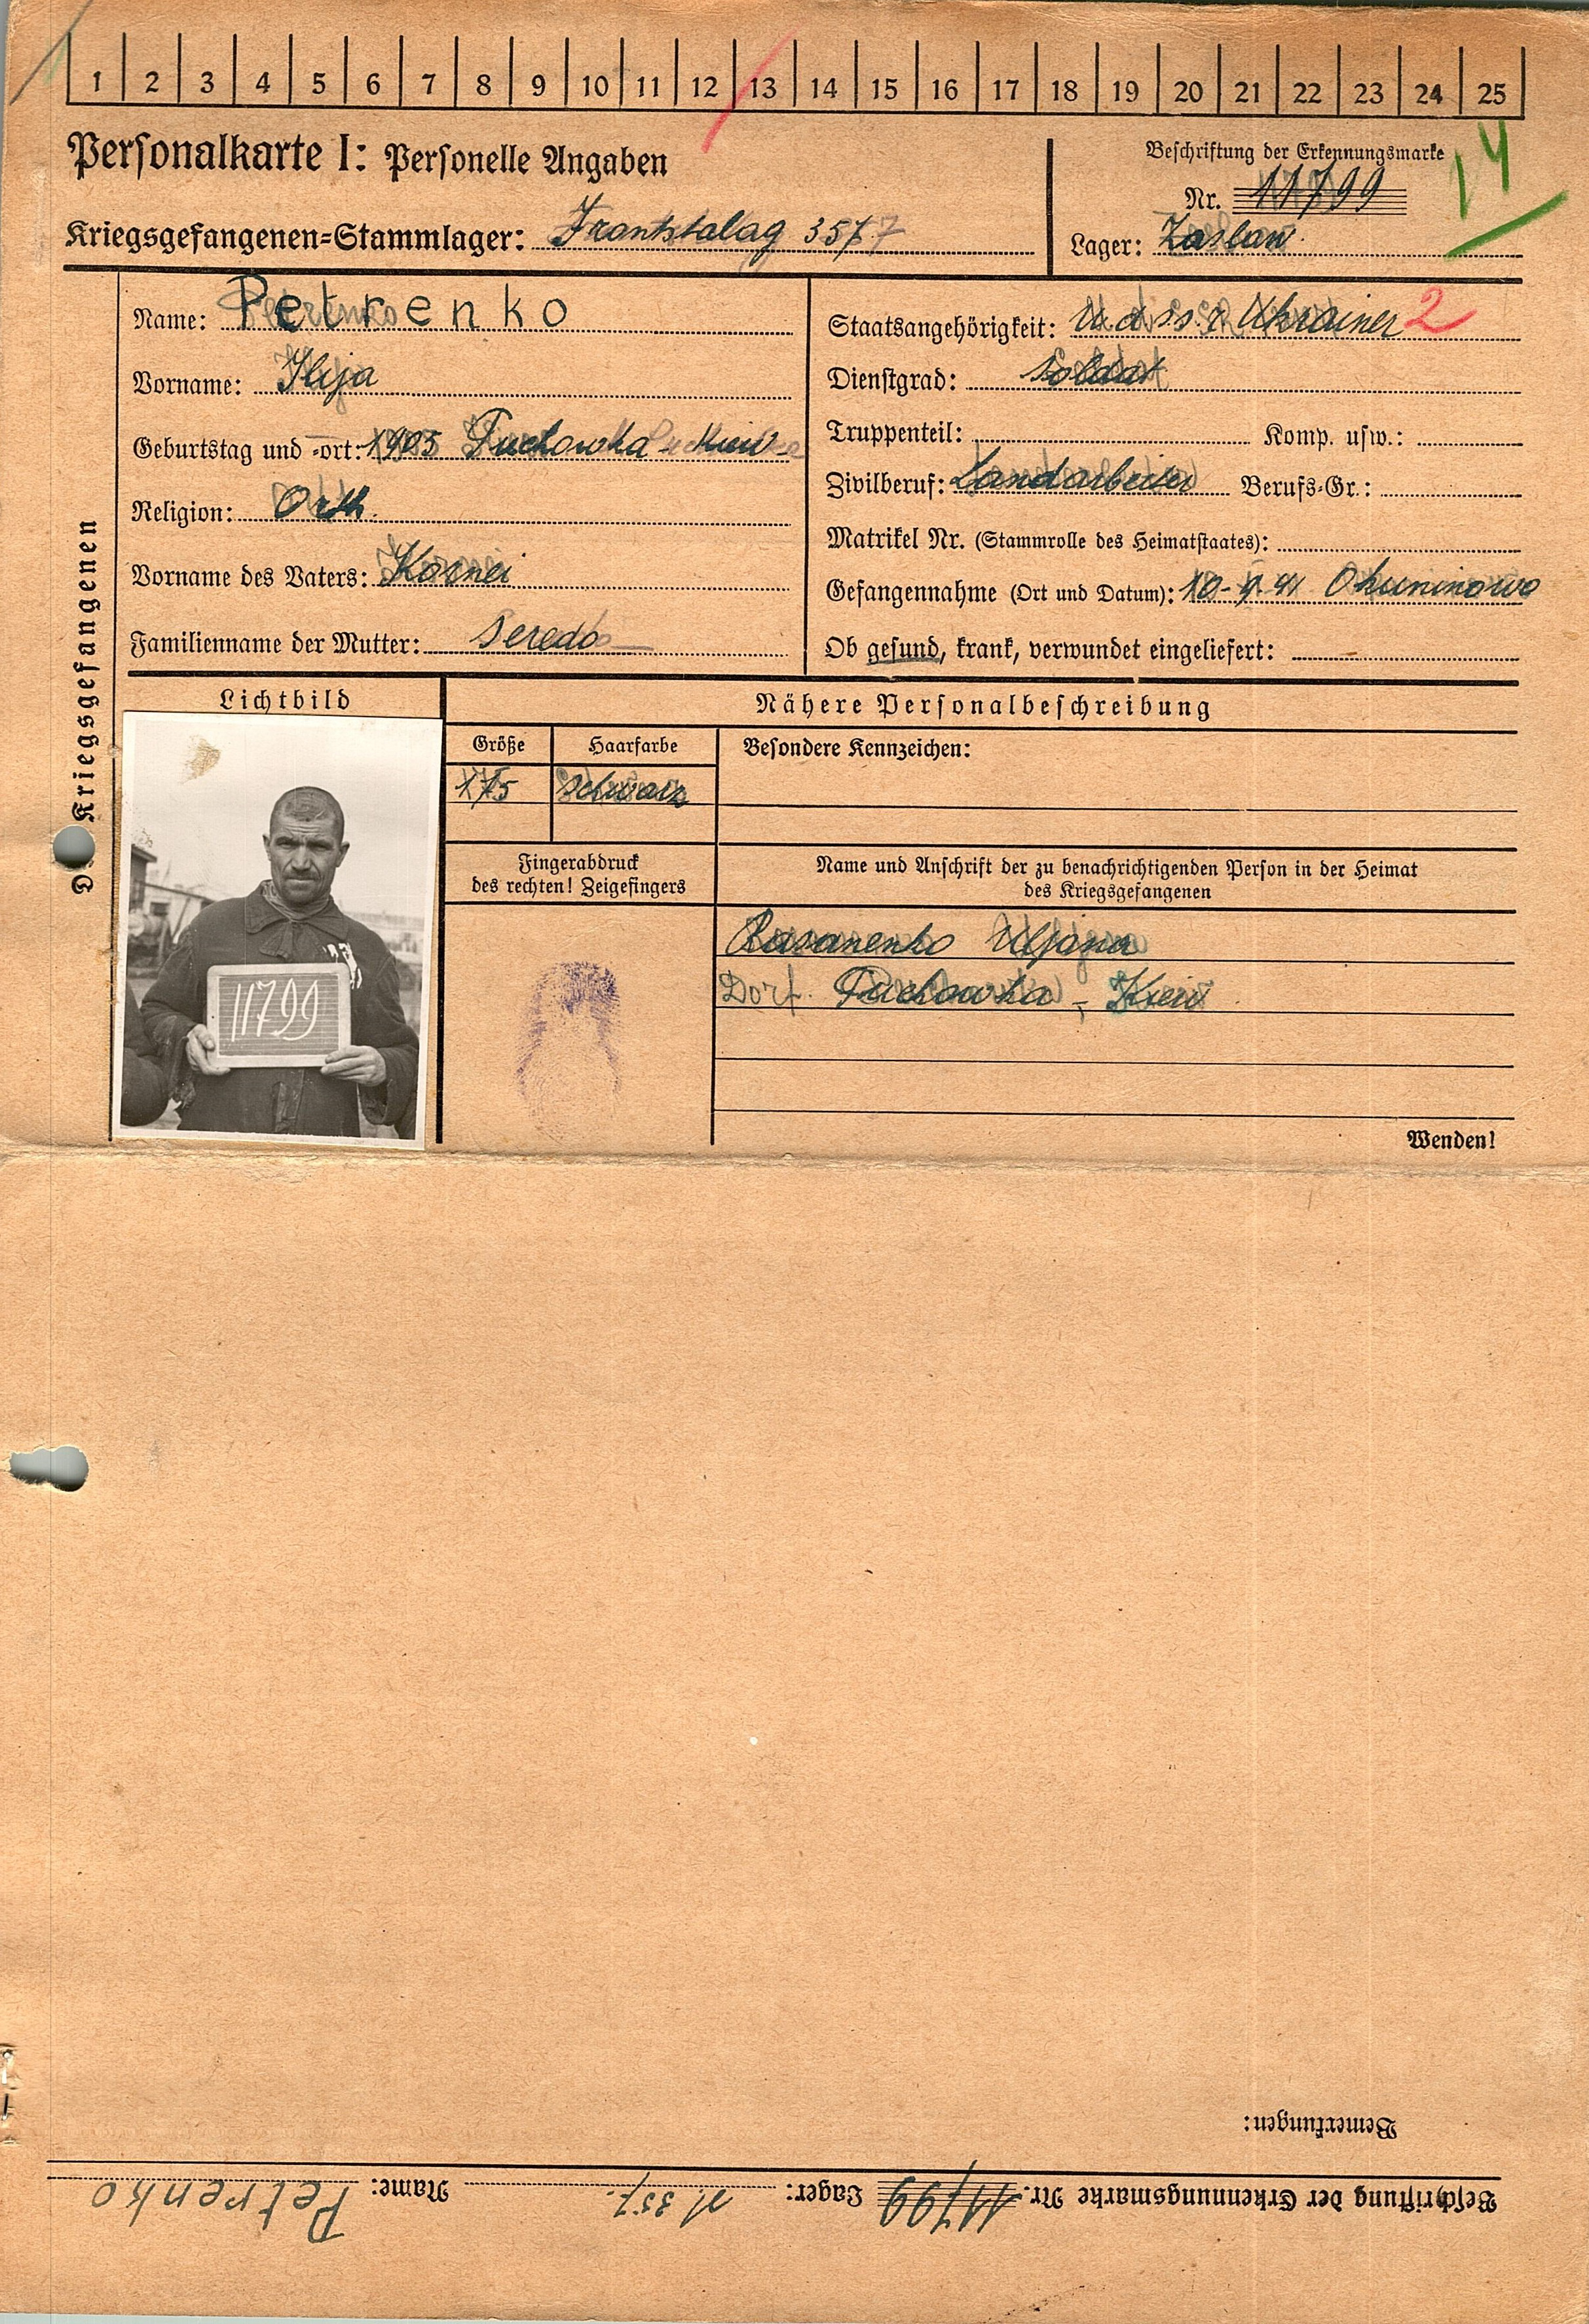 1 2 3 4 5 6 7 8 9 10 11 12 13 14 15 16 17 18 19 20 21 22 23 24 25
Personalkarte I: Personelle Angaben
Beschriftung der Erkennungsmarke
14
Nr. 11799
Kriegsgefangenen-Stammlager: Frontstalag 357
Lager: Zaslaw
Des Kriegsgefangenen
Name: Petrenko
Vorname: Ilija
Geburtstag und -ort: 1905 Puchowka - Kiew
Religion: Orth.
Vorname des Vaters: Kornei
Familienname der Mutter: Seredo
Staatsangehörigkeit: U.d.s.s.r Ukrainer 2
Dienstgrad: Soldat
Truppenteil: Komp. usw.:
Zivilberuf: Landarbeiter Berufs-Gr.:
Matrikel Nr. (Stammrolle des Heimatstaates):
Gefangennahme (Ort und Datum): 10-9-41 Okuninowo
Ob gesund, krank, verwundet eingeliefert:
Lichtbild
11799
Nähere Personalbeschreibung
Größe Haarfarbe
175 schwarz
Besondere Kennzeichen:
Fingerabdruck
des rechten! Zeigefingers
Name und Anschrift der zu benachrichtigenden Person in der Heimat
des Kriegsgefangenen
Uljana
Dorf. Puchowka - Kiew
Wenden!
Bemerkungen:
Beschriftung der Erkennungsmarke Nr. 11799 Lager: 357. Name: Petrenko